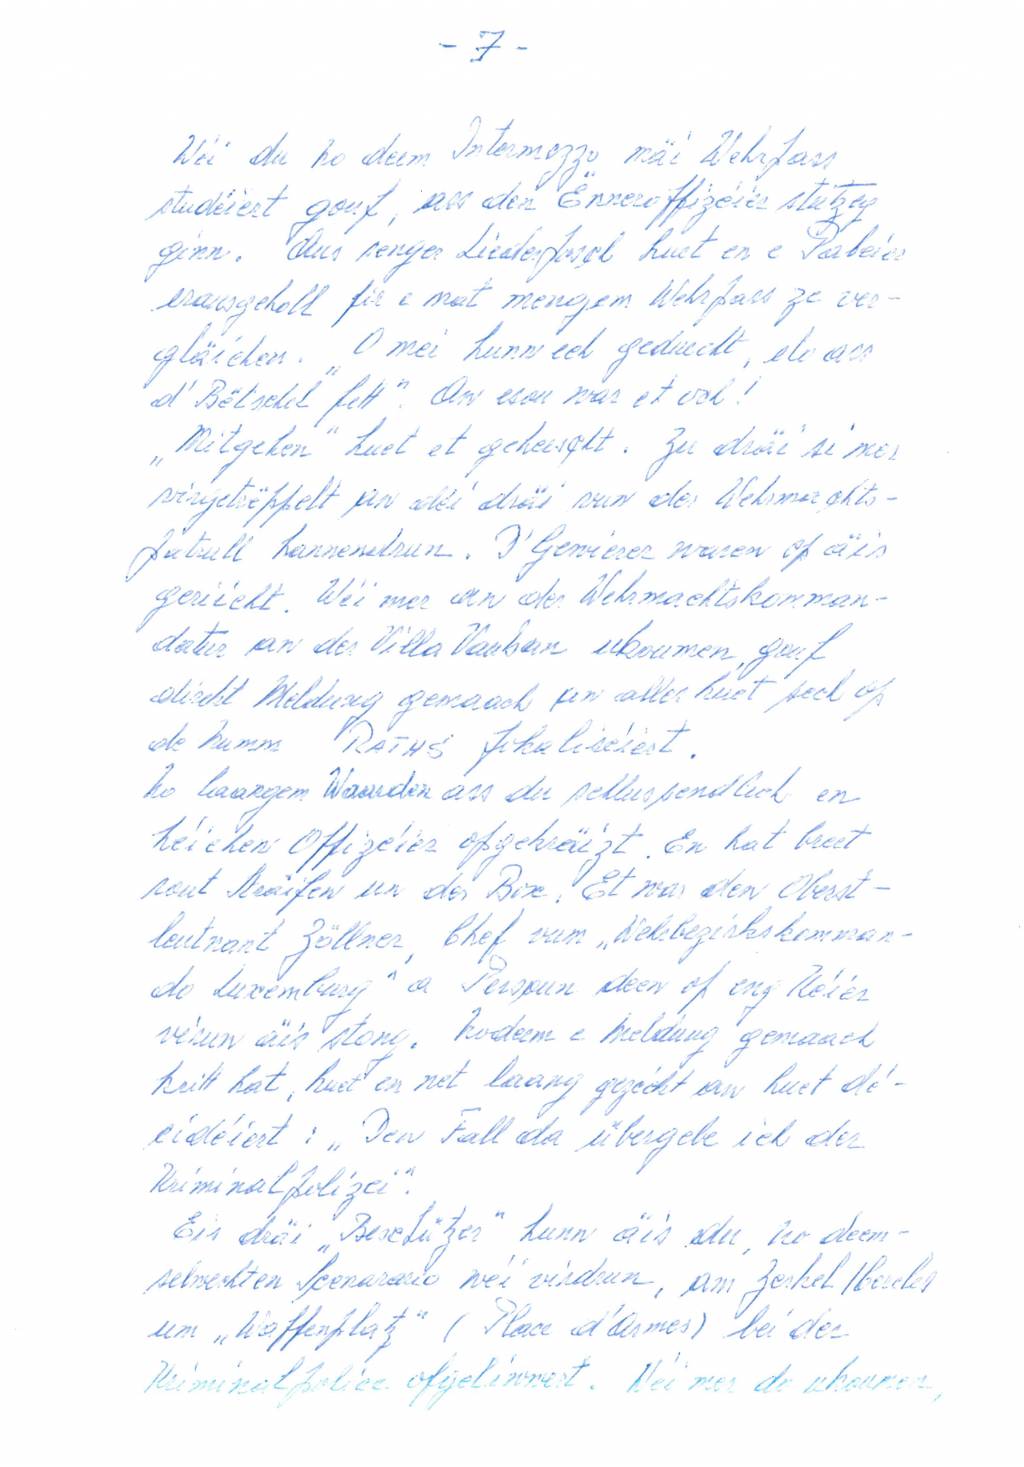 - 7 -
Wéi du no deem Intermezzo mäi Wehrpass
studéiert gouf, ass den Ënneroffizéier stutzeg
ginn. Aus senger Liederposch huet en e Pabeier
erausgeholl fir e mat mengem Wehrpass ze ver-
gläichen. „O mei hunn ech geduecht, elo ass
d'Bëtschel fett". An esou war et och!
„Mitgehen" huet et geheescht. Zu dräi si mer
virgetrëppelt an déi dräi vun der Wehrmachts-
patrull hannendrun. D'Gewierer waren op äis
geriicht. Wéi mer an der Wehrmachtskomman-
datur an der Villa Vauban ukoumen, gouf
direkt Meldung gemaach an alles huet sech op
de Numm RATHS fokaliséiert.
No laangem Waarden ass du schlussendlech en
héichen Offizéier opgekräizt. En hat breet
rout Sträifen un der Box. Et war den Oberst-
leutnant Zöllner, Chef vum „Wehrbezirkskomman-
do Luxemburg" a Persoun deen op eng Kéier
virun äis stong. Nodeem e Meldung gemaach
kritt hat, huet en net laang gezéckt an huet dé-
cidéiert: „Den Fall da übergebe ich der
Kriminalpolizei".
Eis dräi „Beschützer" hunn äis du, no deem-
selwechten Scenarario wéi virdrun, am Zerkel
um „Waffenplatz" (Place d'Armes) bei der
Kriminalpolice ofgeliwwert. Wéi mer do ukoumen,